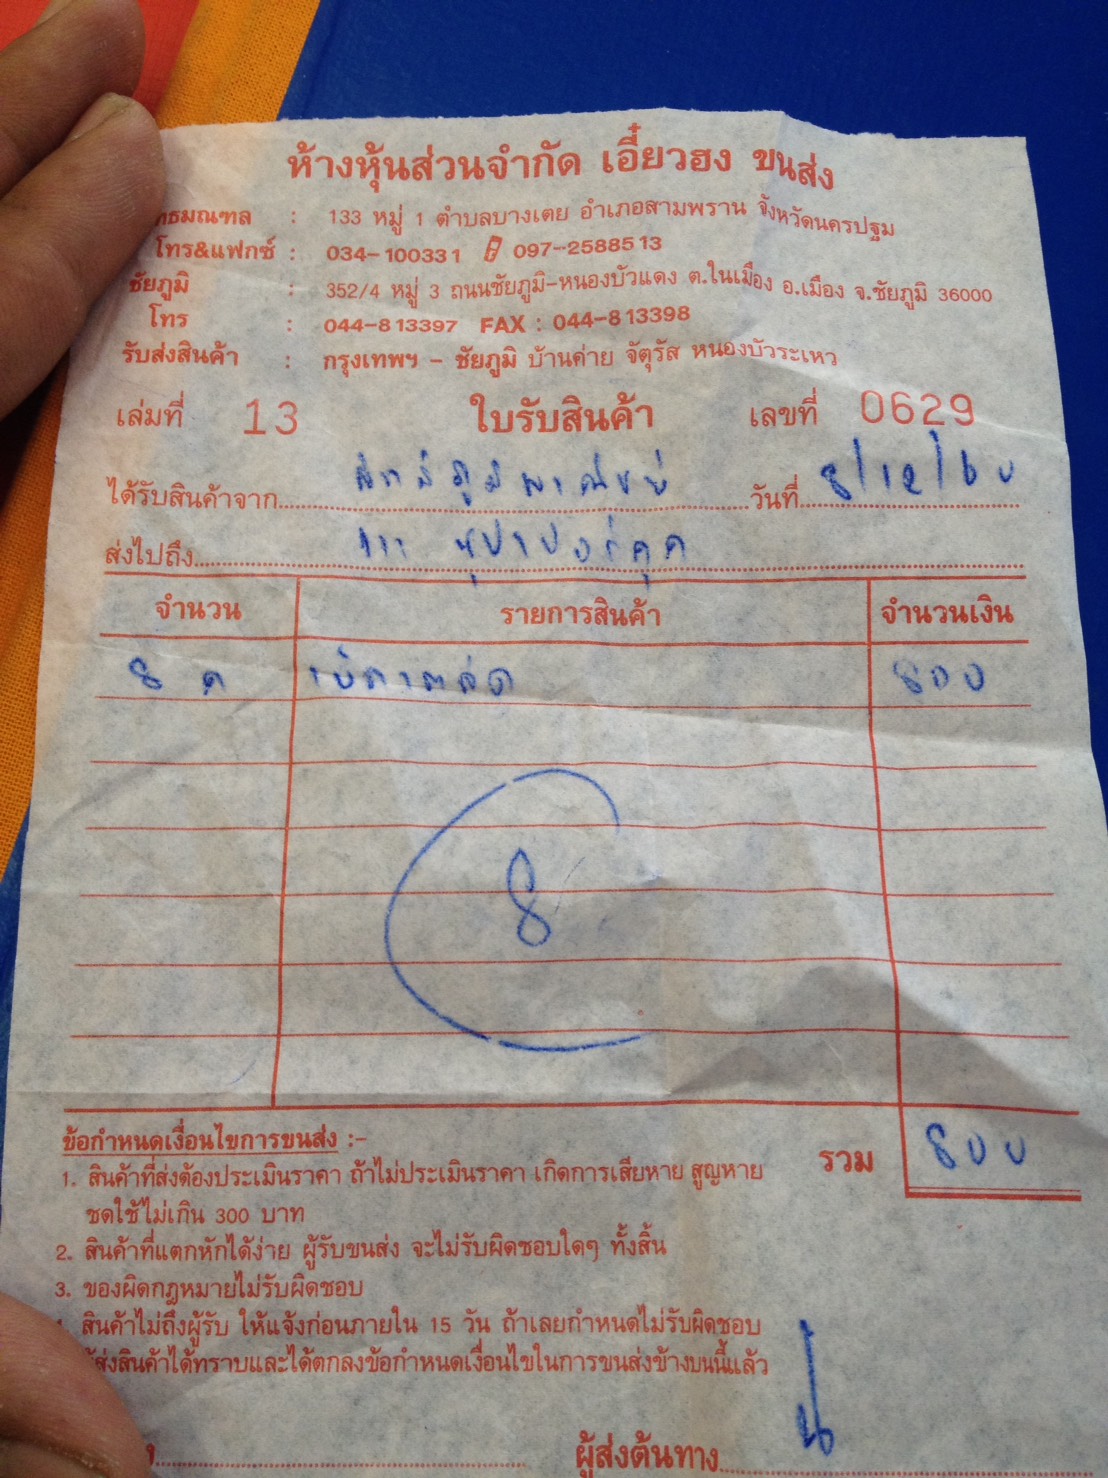 ห้างหุ้นส่วนจำกัด เอี๋ยวฮง ขนส่ง
ธมณฑล : 133 หมู่ 1 ตำบลบางเตย อำเภอสามพราน จังหวัดนครปฐม
โทร&แฟกซ์ : 034-100331 097-2588513
ชัยภูมิ : 352/4 หมู่ 3 ถนนชัยภูมิ-หนองบัวแดง ต.ในเมือง อ.เมือง จ.ชัยภูมิ 36000
โทร : 044-813397 FAX : 044-813398
รับส่งสินค้า : กรุงเทพฯ - ชัยภูมิ บ้านค่าย จัตุรัส หนองบัวระเหว
เล่มที่ 13 ใบรับสินค้า เลขที่ 0629
ได้รับสินค้าจาก วันที่ 8/12/60
ส่งไปถึง
จำนวน รายการสินค้า จำนวนเงิน
8 ค 800
8
ข้อกำหนดเงื่อนไขการขนส่ง :-
1. สินค้าที่ส่งต้องประเมินราคา ถ้าไม่ประเมินราคา เกิดการเสียหาย สูญหาย
ชดใช้ไม่เกิน 300 บาท
รวม 800
2. สินค้าที่แตกหักได้ง่าย ผู้รับขนส่ง จะไม่รับผิดชอบใดๆ ทั้งสิ้น
3. ของผิดกฎหมายไม่รับผิดชอบ
สินค้าไม่ถึงผู้รับ ให้แจ้งก่อนภายใน 15 วัน ถ้าเลยกำหนดไม่รับผิดชอบ
ส่งสินค้าได้ทราบและได้ตกลงข้อกำหนดเงื่อนไขในการขนส่งข้างบนนี้แล้ว
ผู้ส่งต้นทาง